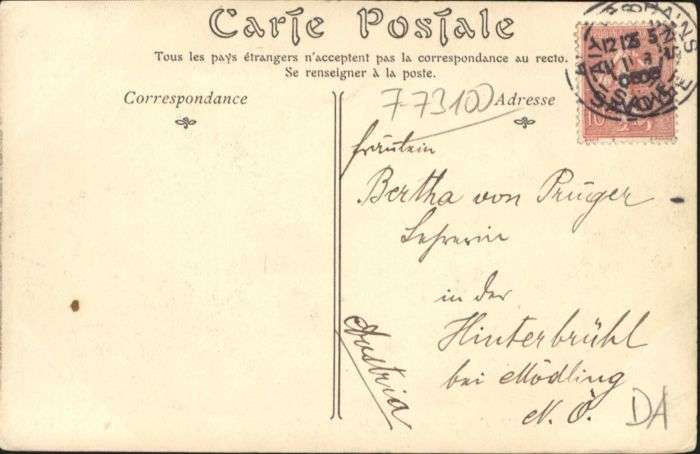 Carte Postale
Tous les pays étrangers n'acceptent pas la correspondance au recto.
Se renseigner à la poste.
Correspondance
Adresse
77310
Fräulein
Bertha von Prüger
Lehrerin
in der
Hinterbrühl
bei Mödling
N. Ö.
Austria
DA
10